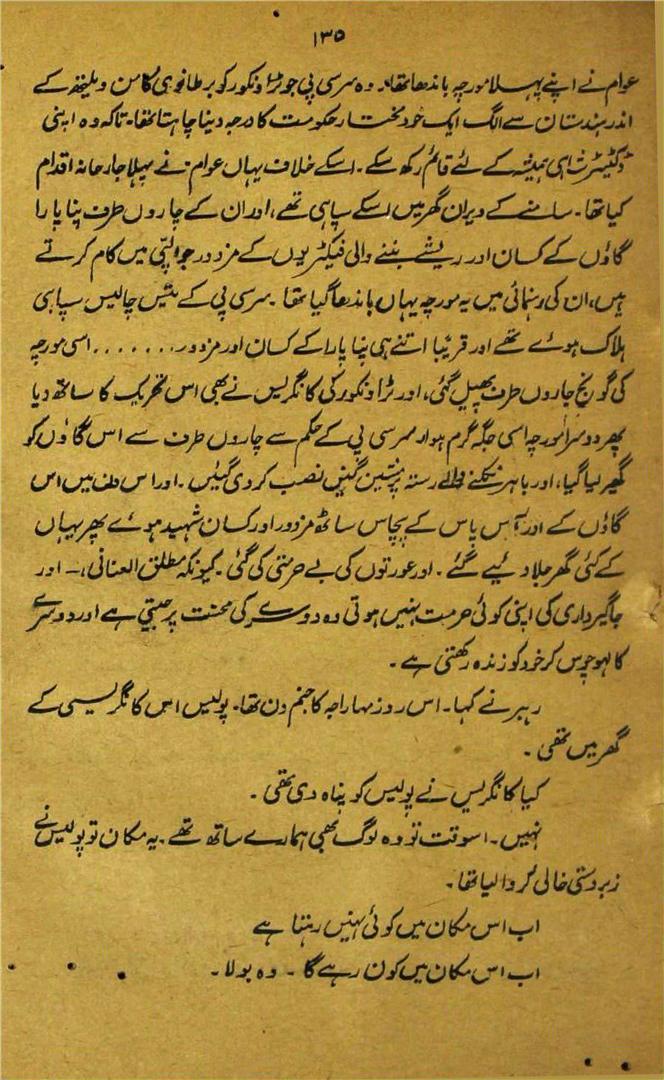 ۱۳۵
عوام نے اپنے پہلا مورچہ باندھا تھا۔ وہ سرسی پی جو ٹراونکور کو برطانوی کامن ویلیتھ کے
اندر ہندستان سے الگ ایک خود مختار حکومت کا درجہ دینا چاہتا تھا۔ تاکہ وہ اپنی
ڈکٹیٹر شاہی ہمیشہ کے لئے قائم رکھ سکے۔ اسکے خلاف یہاں عوام نے پہلا جارحانہ اقدام
کیا تھا۔ سامنے کے ویران گھر میں اسکے سپاہی تھے، اور ان کے چاروں طرف پنا پارا
گاؤں کے کسان اور ریشے بننے والی فیکٹریوں کے مزدور جو الپی میں کام کرتے
ہیں، ان کی رہنمائی میں یہ مورچہ یہاں باندھا گیا تھا۔ سرسی پی کے تیس چالیس سپاہی
ہلاک ہوئے تھے اور قریباً اتنے ہی پنا پارا کے کسان اور مزدور....... اسی مورچہ
کی گونج چاروں طرف پھیل گئی، اور ٹراونکور کی کانگریس نے بھی اس تحریک کا ساتھ دیا
پھر دوسرا مورچہ اسی جگہ گرم ہوا۔ سرسی پی کے حکم سے چاروں طرف سے اس گاؤں کو
گھیر لیا گیا، اور باہر نکلنے والے رستہ پر مشین گنیں نصب کر دی گئیں۔ اور اس دفعہ میں اس
گاؤں کے اور آس پاس کے پچاس ساٹھ مزدور اور کسان شہید ہوئے پھر یہاں
کے کئی گھر جلا دئیے گئے۔ اور عورتوں کی بے حرمتی کی گئی۔ کیونکہ مطلق العنانی، - اور
جاگیرداری کی اپنی کوئی حرمت نہیں ہوتی وہ دوسرے کی محنت پر جیتی ہے اور دوسرے
کا لہو چوس کر خود کو زندہ رکھتی ہے۔
رہبر نے کہا۔ اس روز مہاراجہ کا جنم دن تھا۔ پولیس اس کانگریسی کے
گھر میں تھی۔
کیا کانگریس نے پولیس کو پناہ دی تھی۔
نہیں۔ اسوقت تو وہ لوگ بھی ہمارے ساتھ تھے۔ یہ مکان تو پولیس نے
زبردستی خالی کروا لیا تھا۔
اب اس مکان میں کوئی نہیں رہتا ہے
اب اس مکان میں کون رہے گا۔ وہ بولا۔